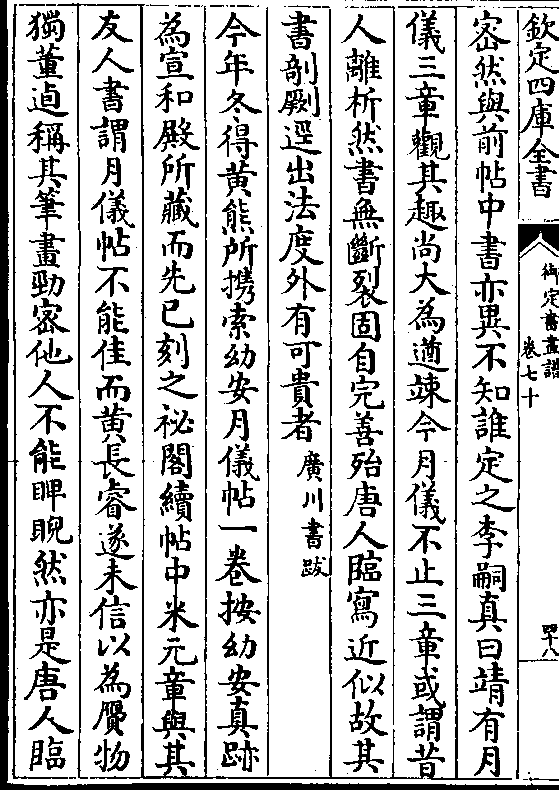 欽定四庫全書
御定書畫譜
卷七十
四十八
密然與前帖中書亦異不知誰定之李嗣真曰靖有月
儀三章觀其趣尚大為遒竦今月儀不止三章或謂昔
人離析然書無斷裂固自完善殆唐人臨寫近似故其
書剞劂逕出法度外有可貴者廣川書跋
今年冬得黄熊所携索幼安月儀帖一卷按幼安真跡
為宣和殿所藏而先已刻之祕閣續帖中米元章與其
友人書謂月儀帖不能佳而黄長睿遂未信以為贋物
獨董逌稱其筆畫勁密他人不能睥睨然亦是唐人臨